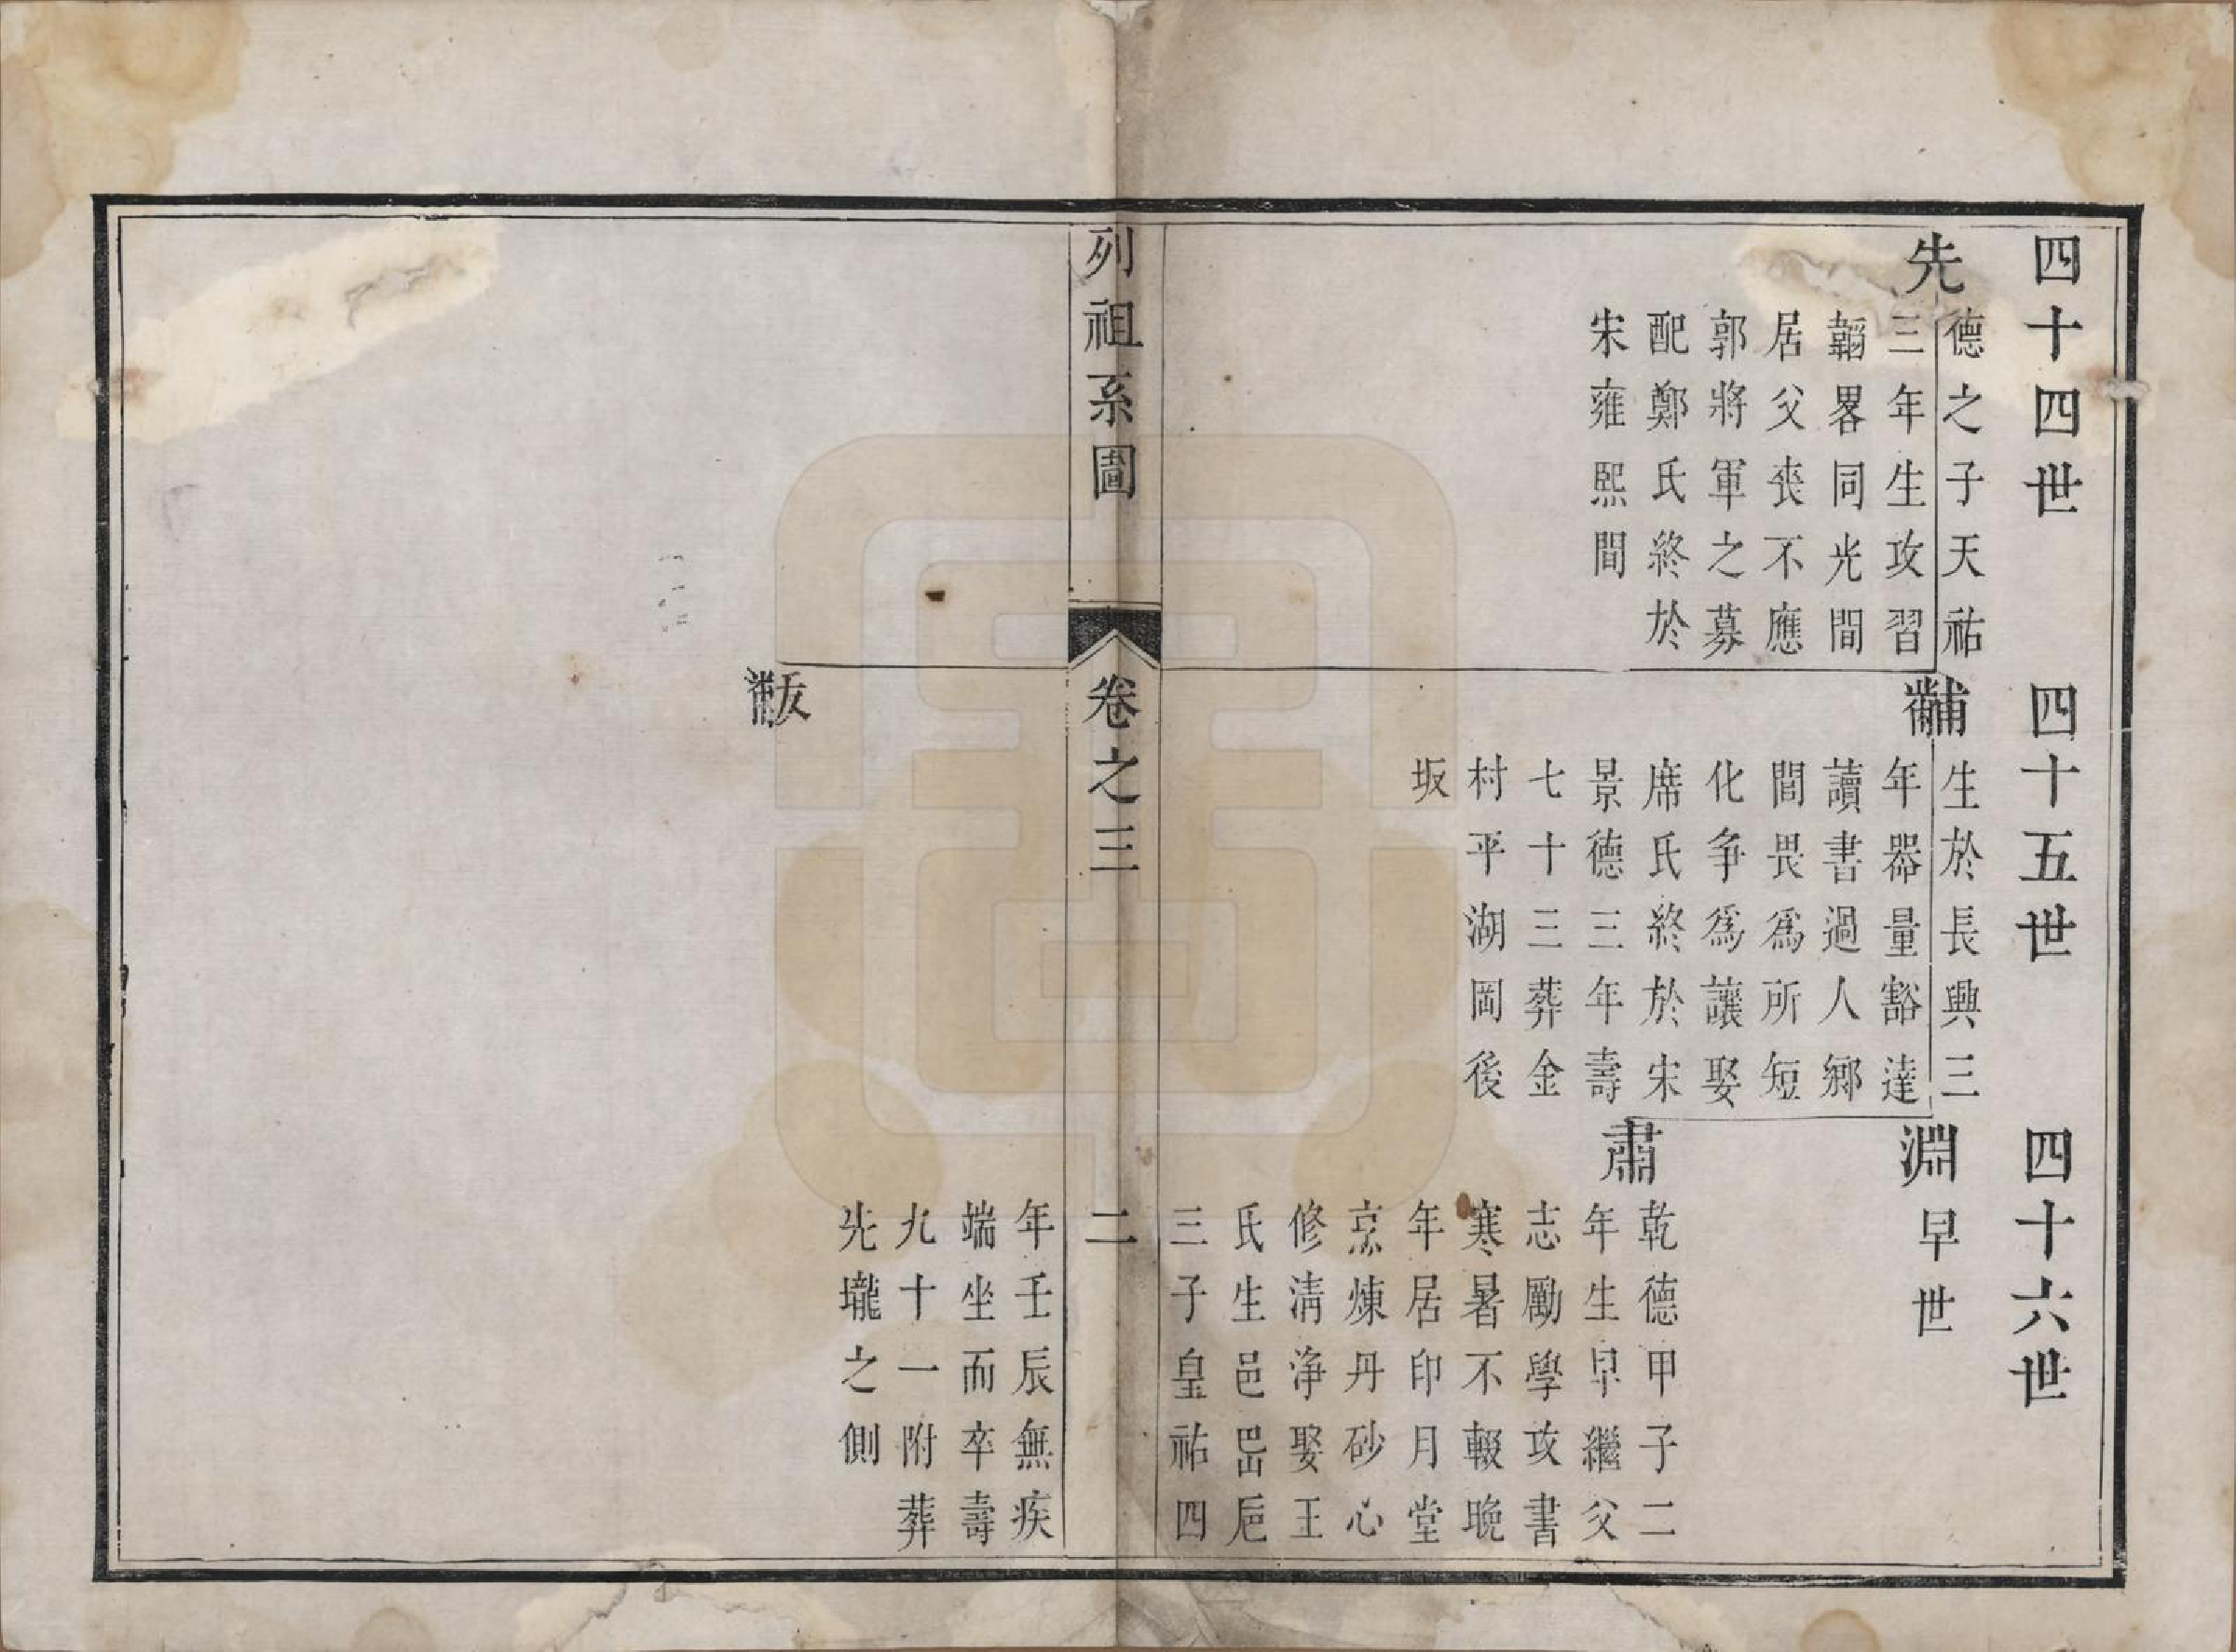 四十四世
先
德之子天祐
三年生攻習
韜畧同光間
居父丧不應
郭將軍之募
配鄭氏終於
宋雍熙間
四十五世
黼
生於長興三
年器量豁達
讀書過人鄉
間畏為所短
化争為讓娶
席氏終於宋
景德三年壽
七十三葬金
村平湖岡後
坂
四十六世
淵
早世
肅
乾德甲子二
年生早繼父
志勵學攻書
寒暑不輟晚
年居印月堂
烹煉丹砂心
修清浄娶王
氏生邑巴巵
三子皇祐四
列祖系圖
卷之三
二
年壬辰無疾
端坐而卒壽
九十一附葬
先壠之側
黻